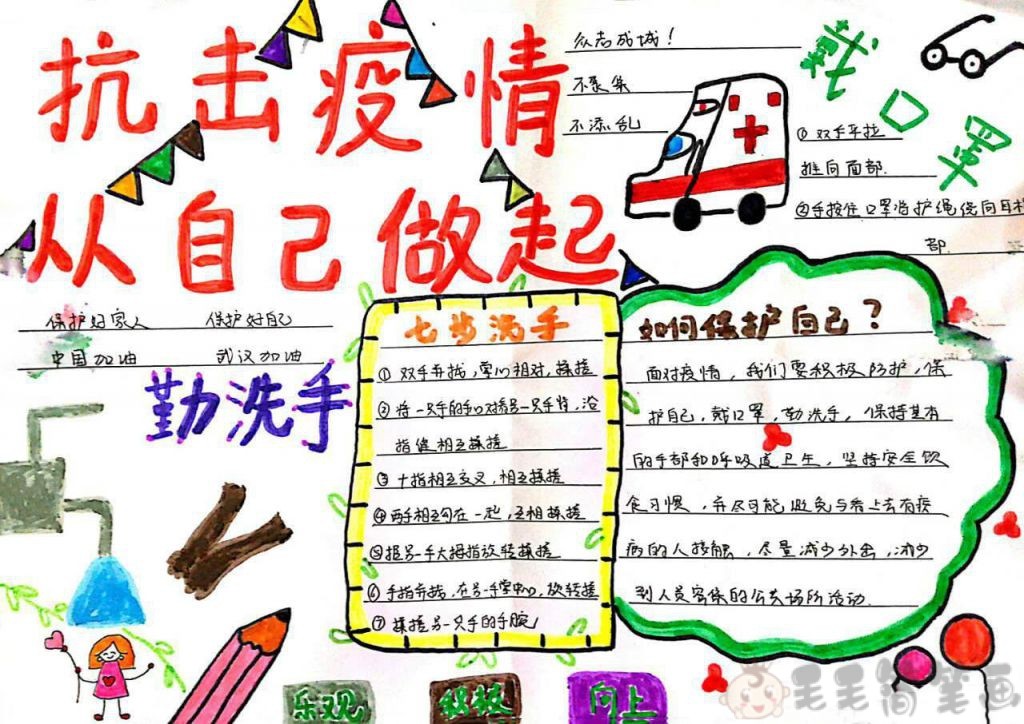 抗击疫情
从自己做起
众志成城！
不聚集
不添乱
戴口罩
①双手平拉
推向面部.
②手按住口罩沿护绳绕向耳根
部.
保护好家人 保护好自己
中国加油 武汉加油
勤洗手
七步洗手
①双手并拢，掌心相对，揉搓
②将一只手的手心对另一只手背，沿
指缝相互揉搓
③十指相互交叉，相互揉搓
④两手相互勾在一起，互相揉搓
⑤握另一手大拇指旋转揉搓
⑥手指并拢，在另一手掌中心，旋转揉搓
⑦揉搓另一只手的手腕
如何保护自己？
面对疫情，我们要积极防护，保
护自己，戴口罩，勤洗手，保持其有
的手部和呼吸道卫生，坚持安全饮
食习惯，并尽可能避免与看上去有疾
病的人接触，尽量减少外出，减少
到人员密集的公共场所活动.
乐观 积极 向上
毛毛简笔画